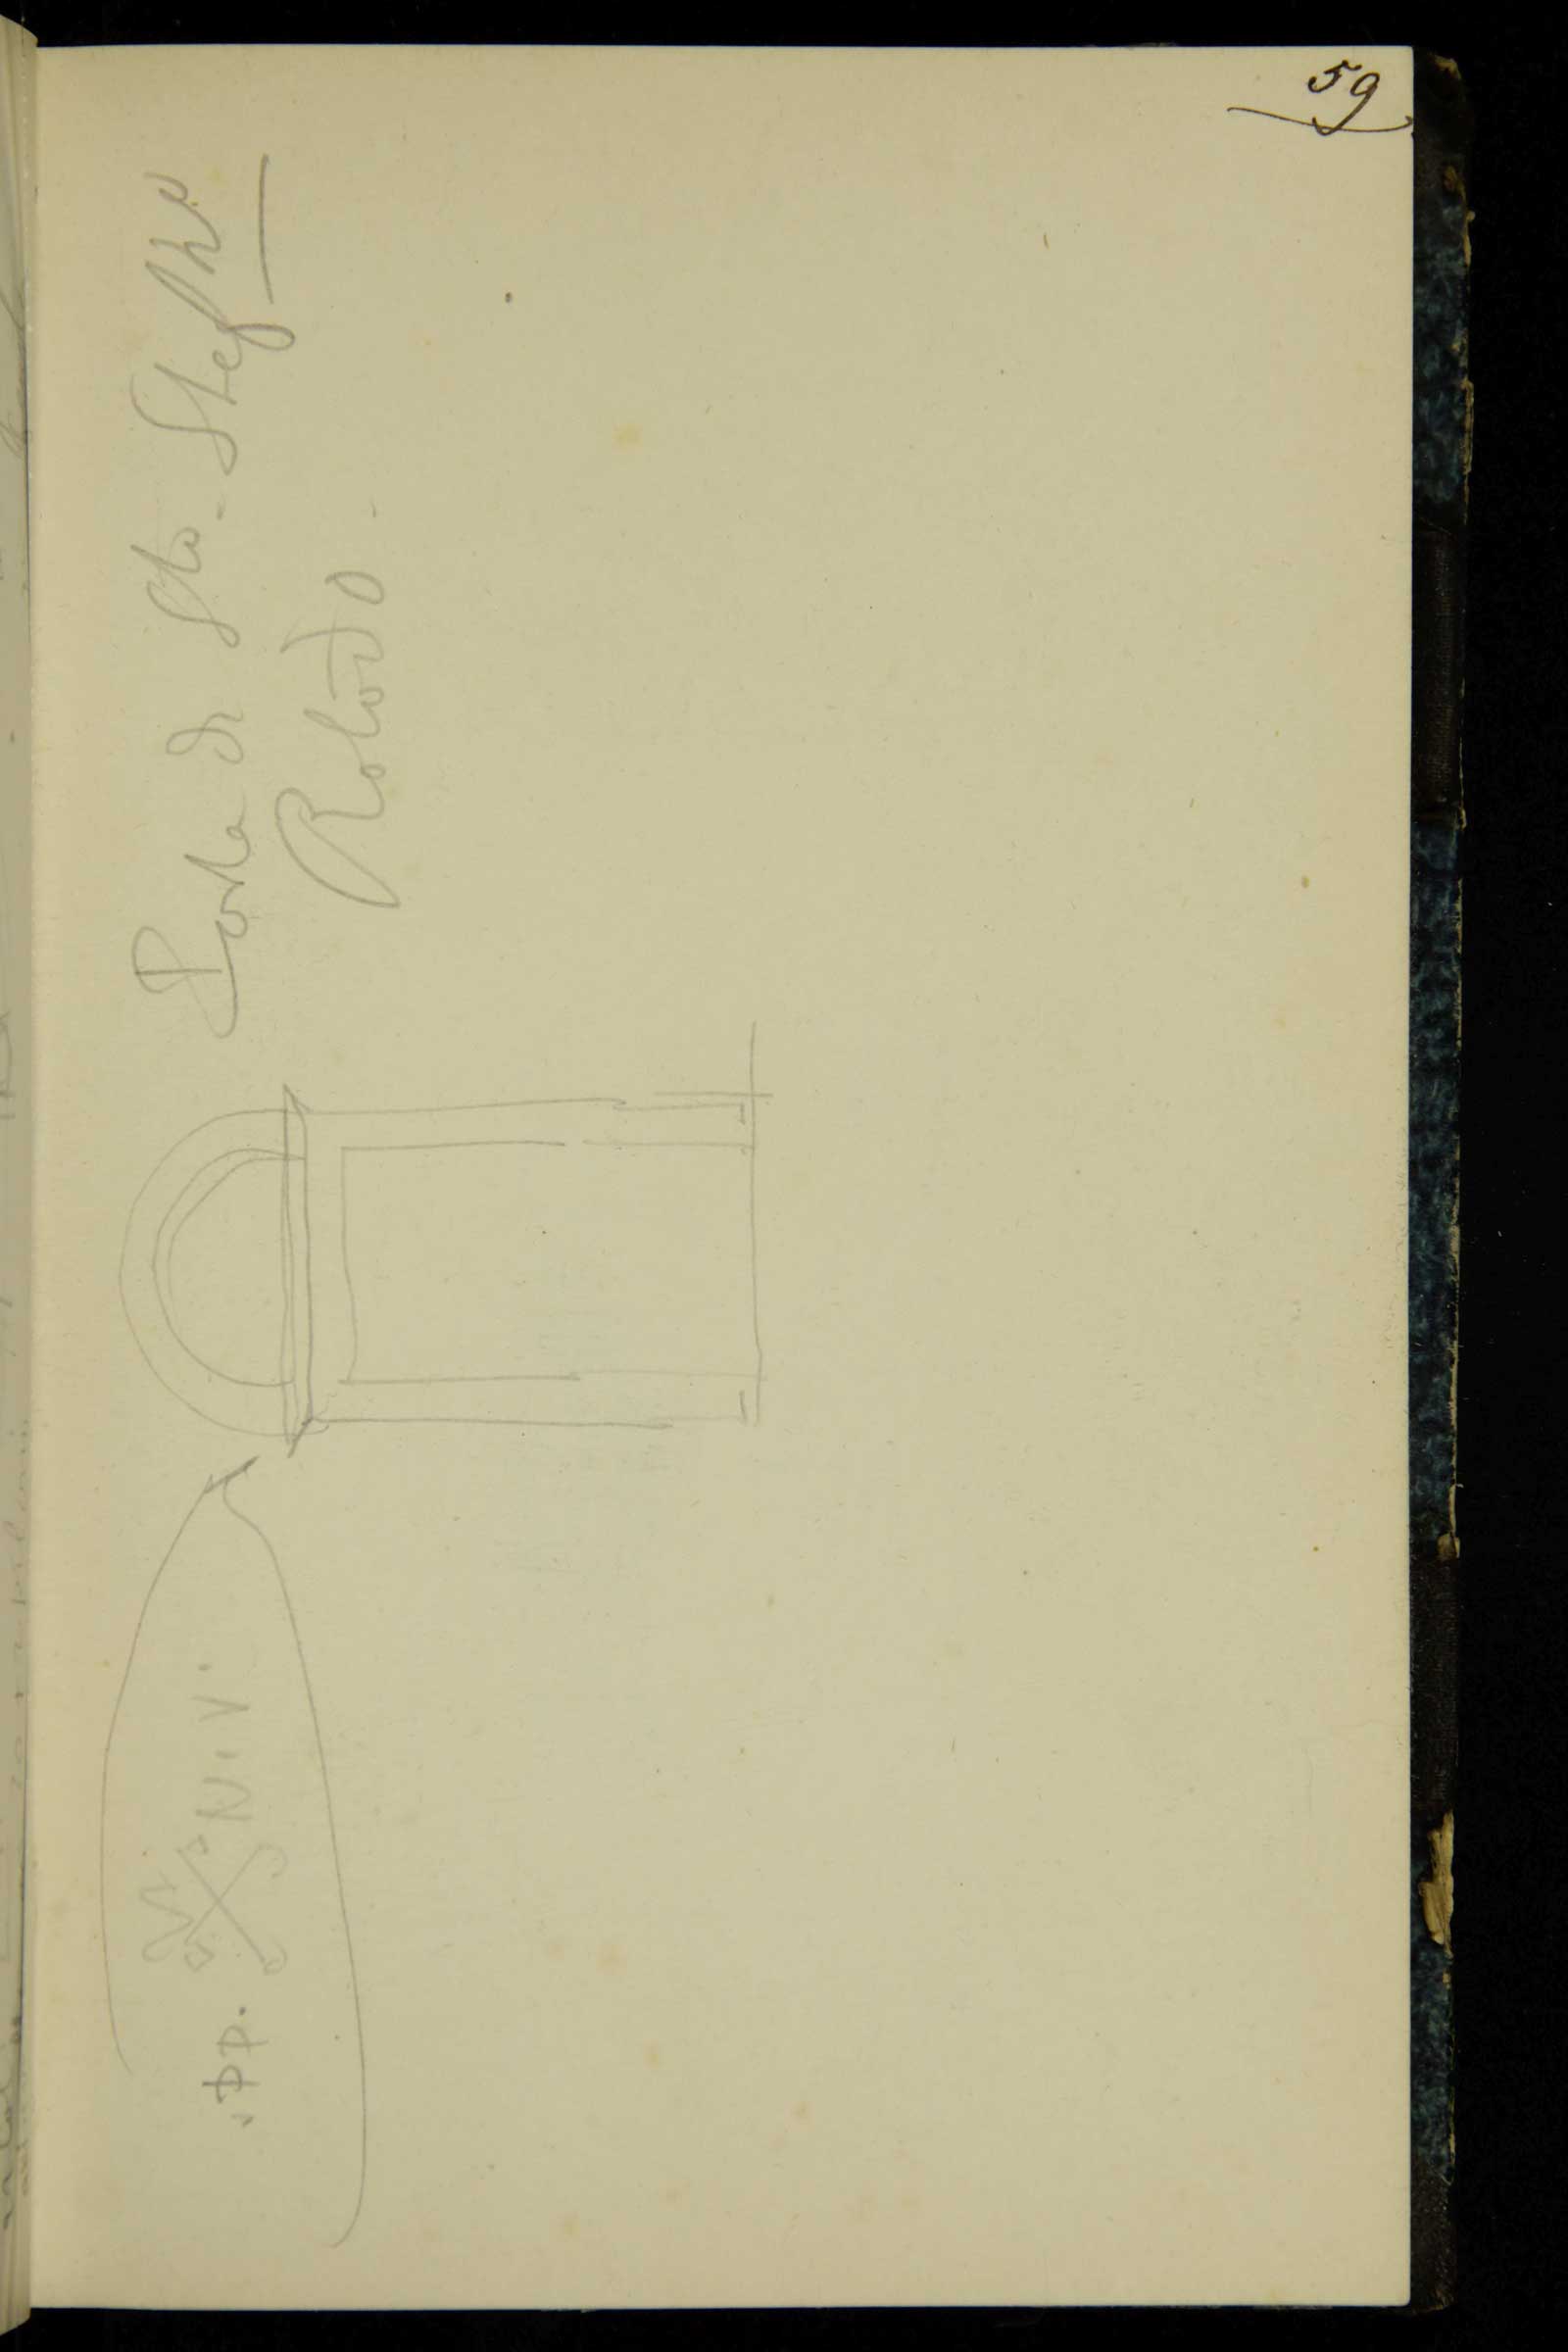 59
Porta di Sto. Stefno
Rotōdo.
.PP. N.V.